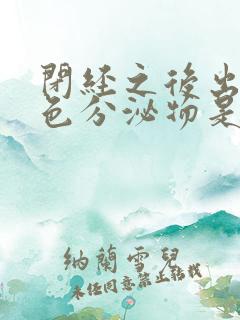 閉經之後出
色分泌物是
納蘭雪兒
未經同意禁止轉載